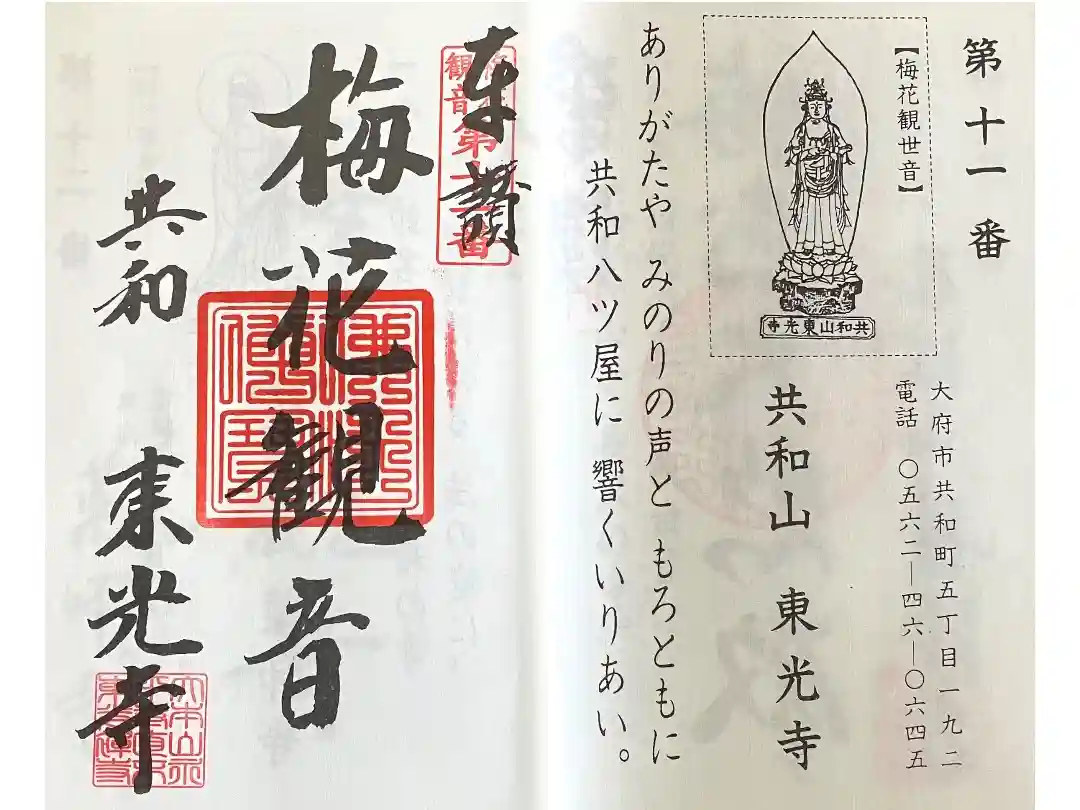 第十一番
【梅花観世音】
共和山東光寺
大府市共和町五丁目一九二
電話 〇五六二―四六―〇六四五
共和山 東光寺
ありがたや みのりの声と もろともに
共和八ツ屋に 響くいりあい。
奉讃
観音
第十一番
梅花観音
共和 東光寺